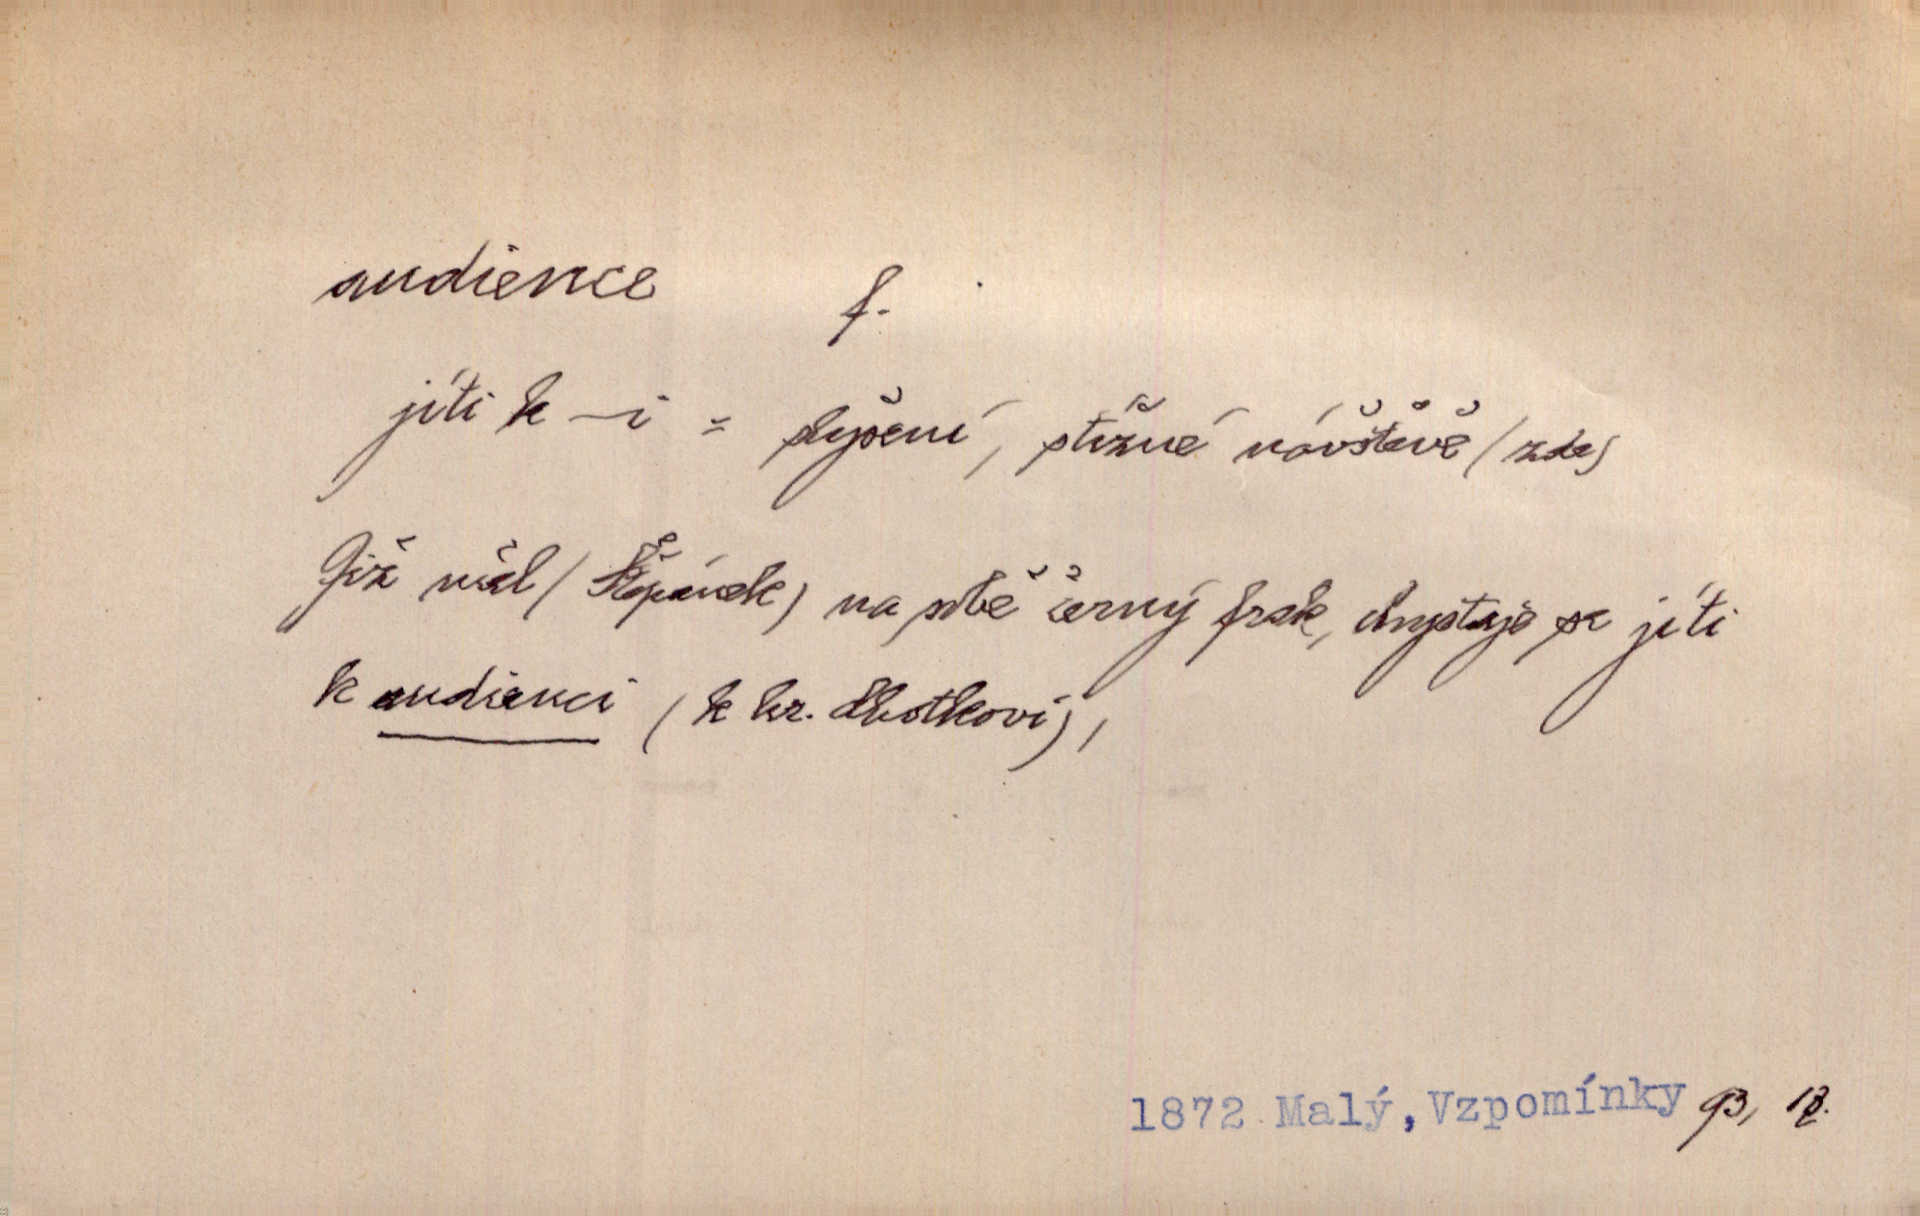 audience f.
jíti k –i = slyšení, stižné návštěvě (zde)
Již měl (Štěpánek) na sobě černý frak, chystaje se jíti
k audienci (k hr. Chotkovi),
1872 Malý, Vzpomínky 93,